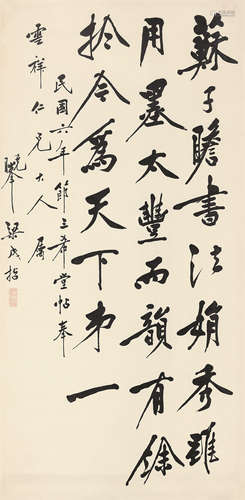 蘇子瞻書法娟秀雖
用墨太豐而韻有餘
於今為天下第一
民國六年節三希堂帖奉
雲祥仁兄大人屬
梁成